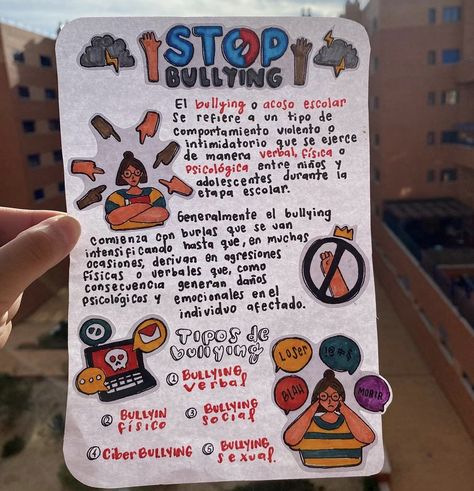 STOP
BULLYING
El bullying o acoso escolar
se refiere a un tipo de
comportamiento violento o
intimidatorio que se ejerce
de manera verbal, física o
psicológica entre niños y
adolescentes durante la
etapa escolar.
Generalmente el bullying
comienza con burlas que se van
intensificando hasta que, en muchas
ocasiones, derivan en agresiones
físicas o verbales que, como
consecuencia generan daños
psicológicos y emocionales en el
individuo afectado.
Tipos de
bullying
① Bullying,
verbal
② Bullyin
físico
③ Bullying
social
④ CiberBullying
⑤ Bullying
sexual.
LOSER
!@#$
BLAH
MORIR